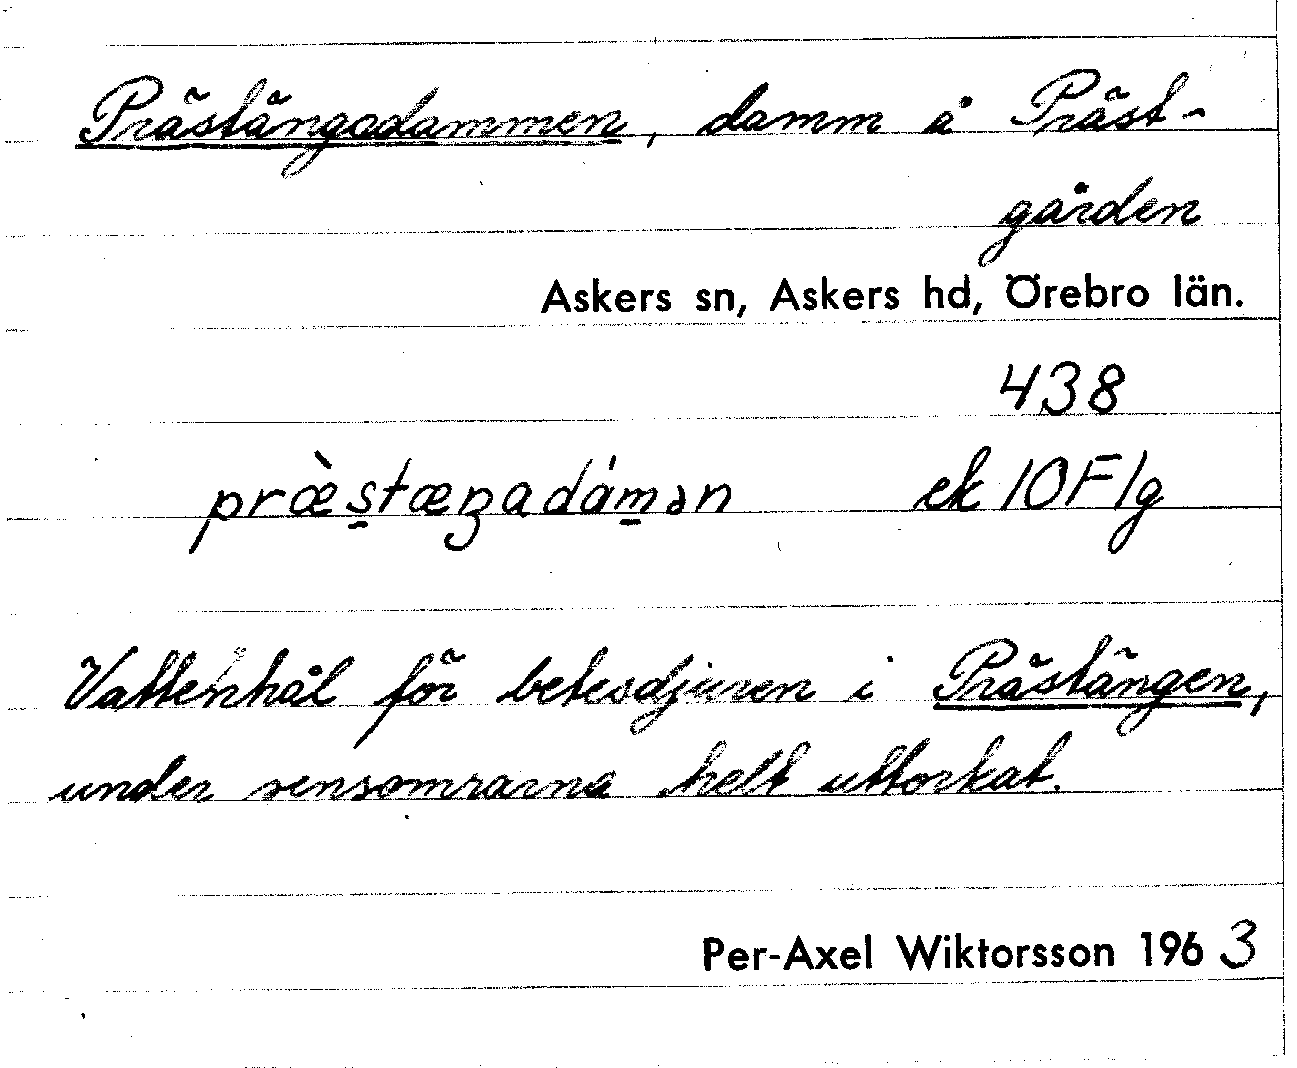 Prästängadammen, damm å Präst-
gården
Askers sn, Askers hd, Örebro län.
438
præ̀s̠tæŋadám̠ən ek 10F1g
Vattenhål för betesdjuren i Prästängen,
under sensomrarna helt uttorkat.
Per-Axel Wiktorsson 1963